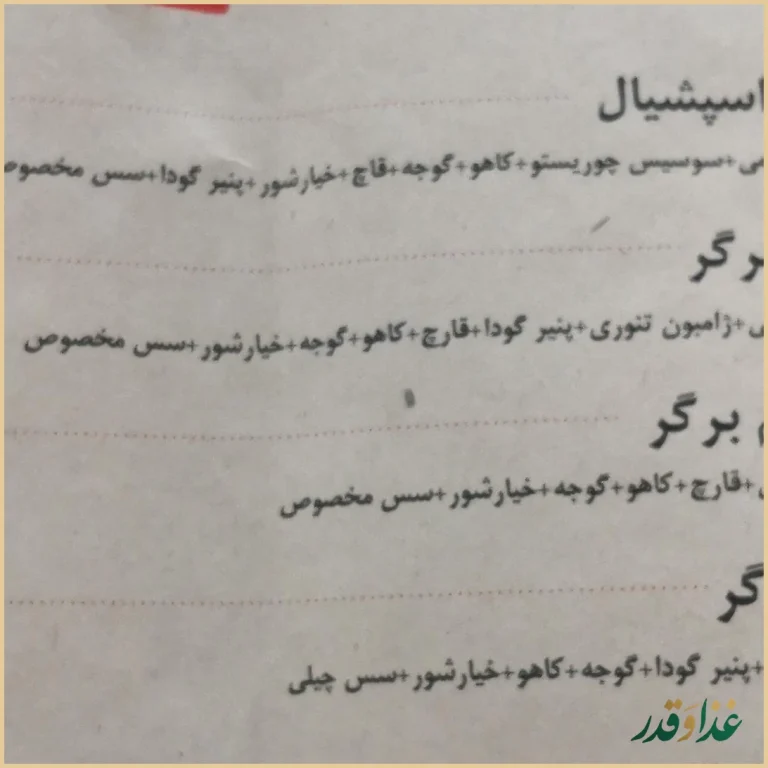 اسپشیال
+سوسیس چوریستو+کاهو+گوجه+قاچ+خیارشور+پنیر گودا+سس مخصوص
برگر
+ژامبون تنوری+پنیر گودا+قارچ+کاهو+گوجه+خیارشور+سس مخصوص
برگر
+قارچ+کاهو+گوجه+خیارشور+سس مخصوص
گر
+پنیر گودا+گوجه+کاهو+خیارشور+سس چیلی
غذا و قدر